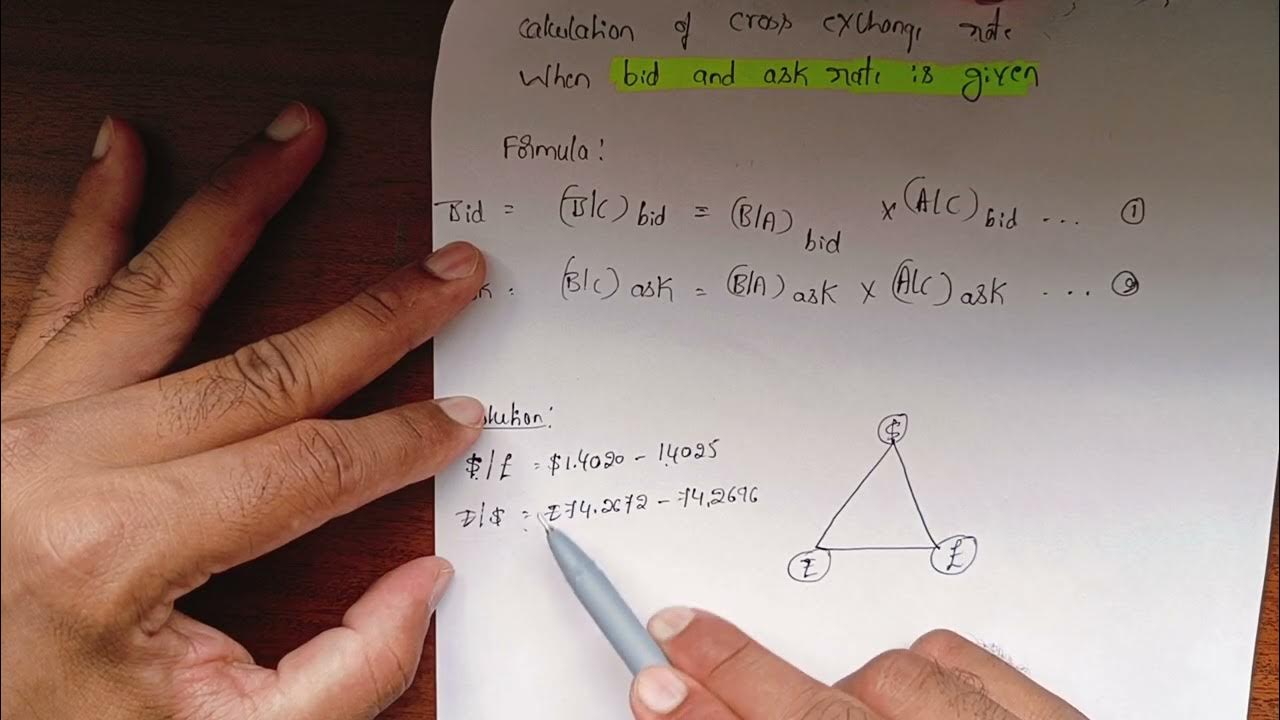 calculation of cross exchange rate
When bid and ask rate is given
Formula:
Bid = (B/C) bid = (B/A) bid × (A/C) bid ... ①
(B/C) ask = (B/A) ask × (A/C) ask ... ②
lution:
$/£ = $1.4020 - 1.4025
₹/$ = ₹74.2672 - 74.2696
$
₹ £